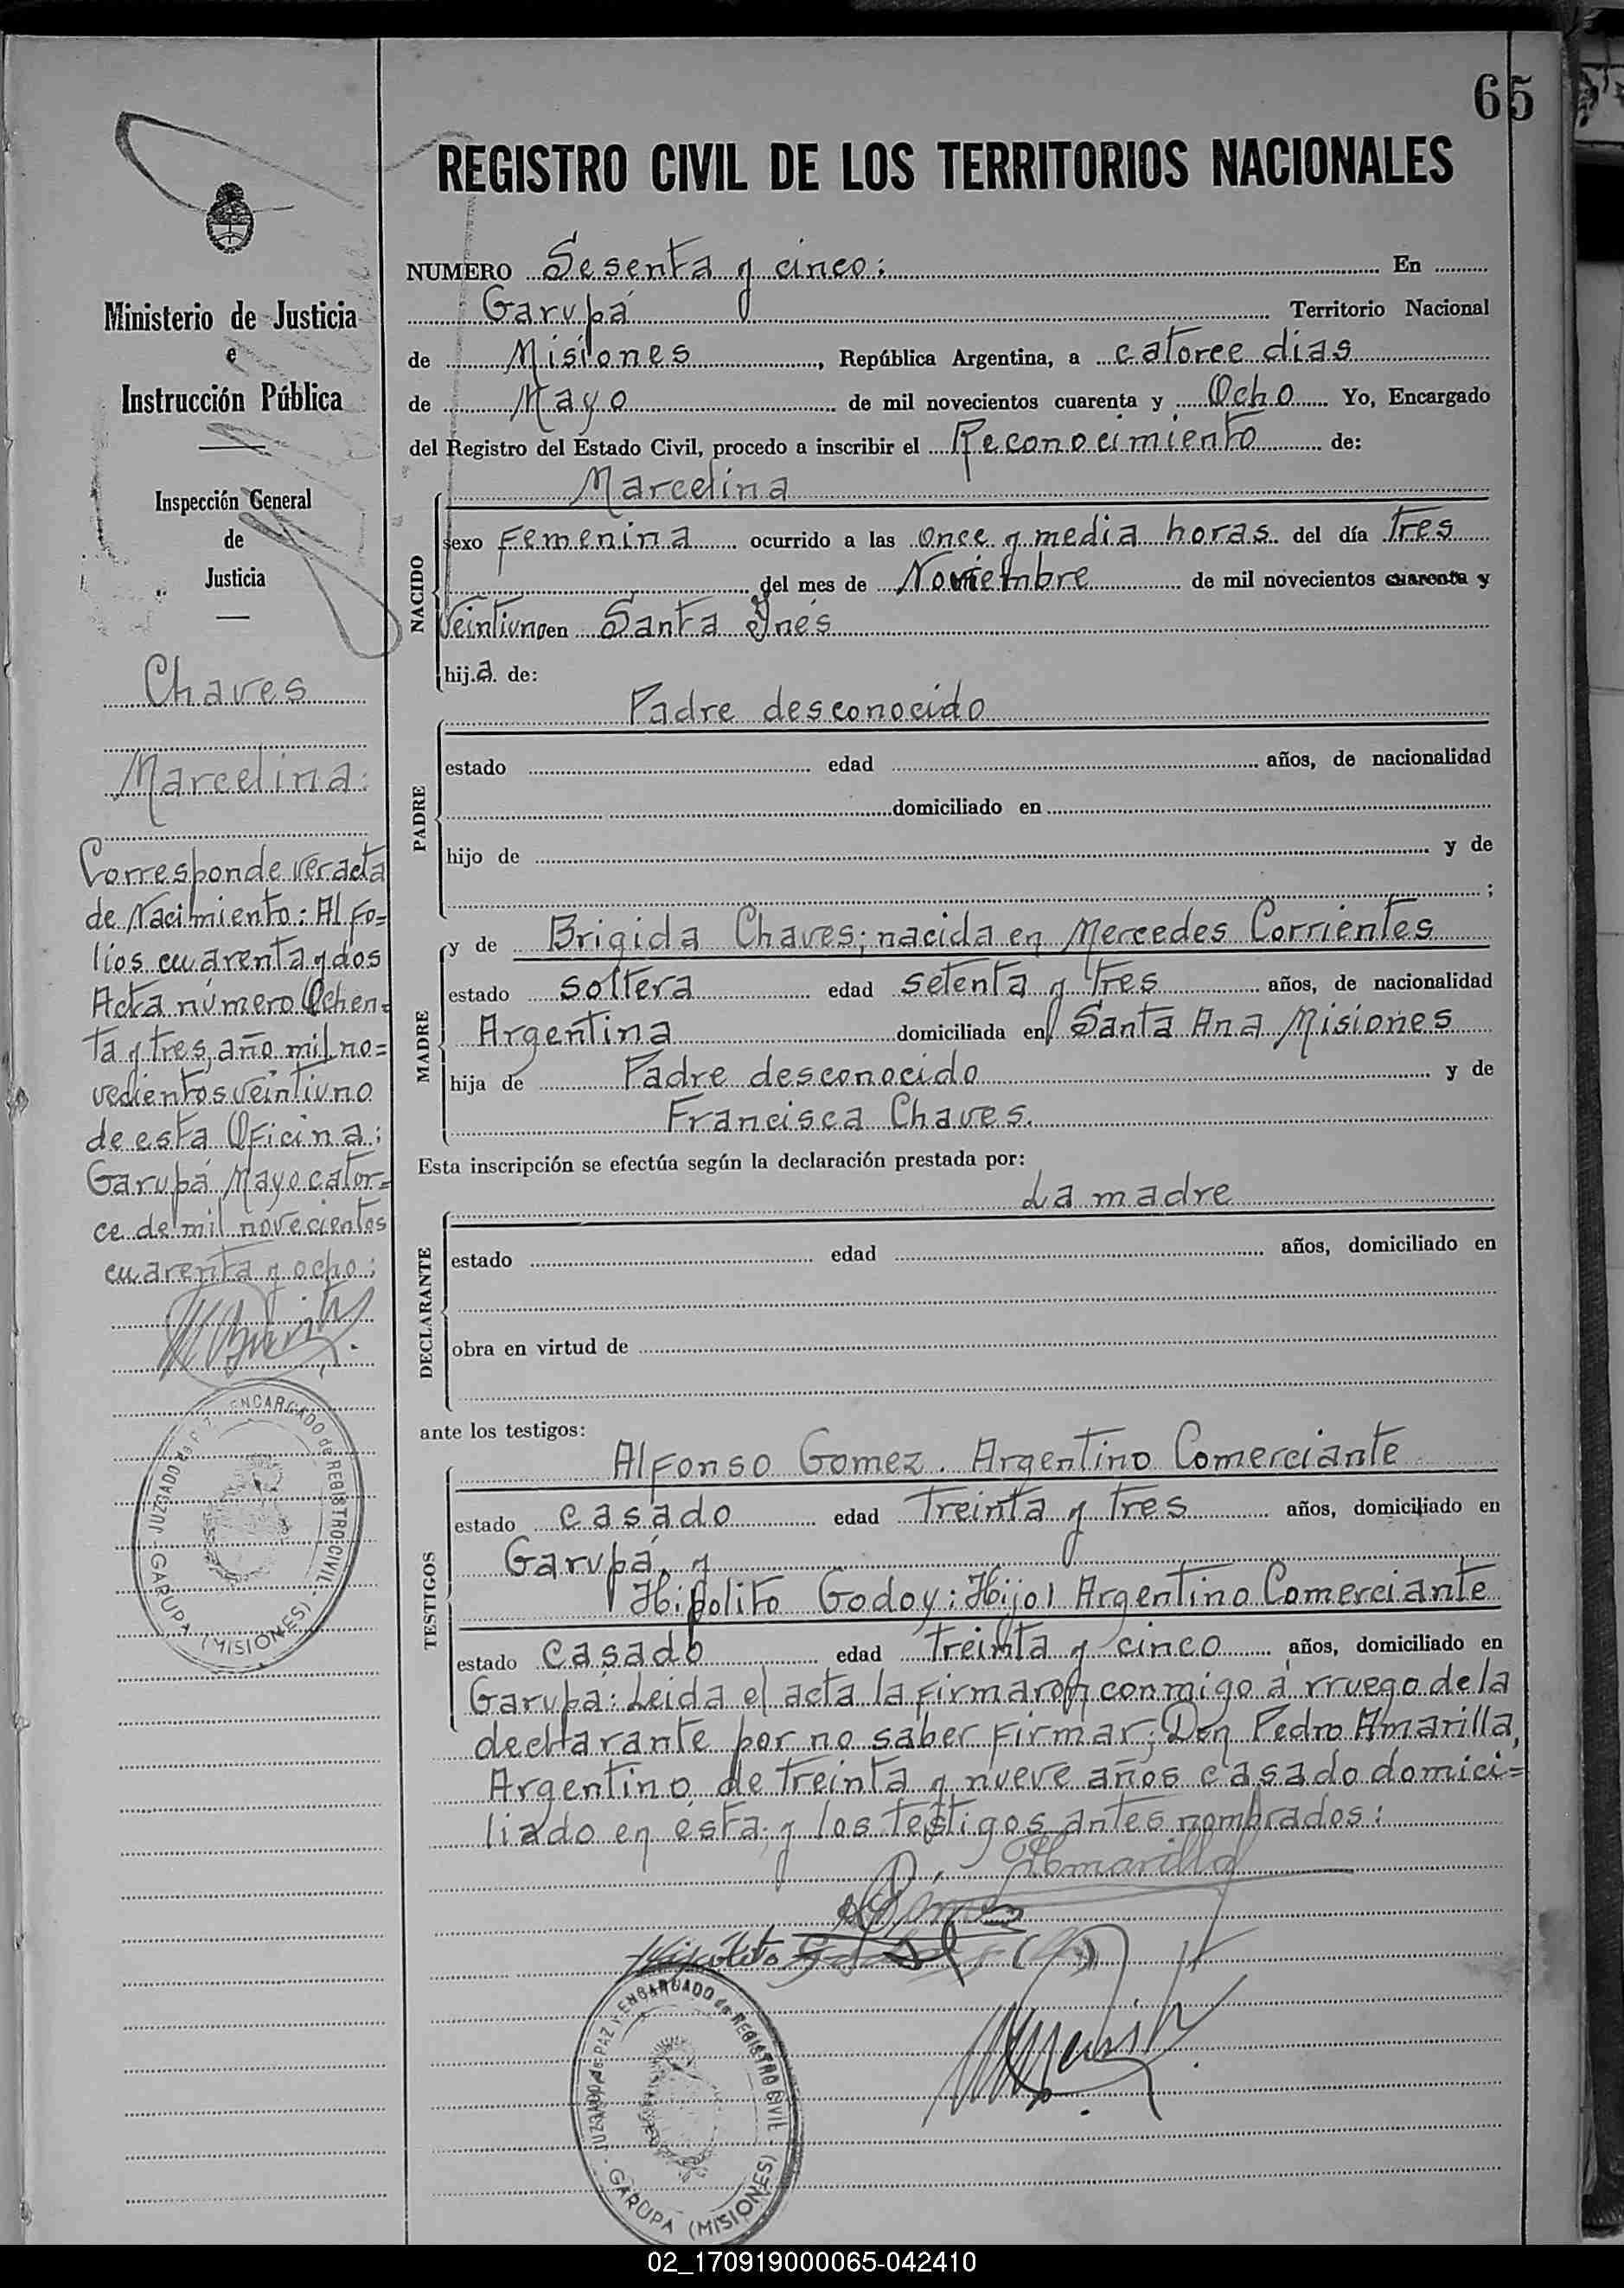 65
REGISTRO CIVIL DE LOS TERRITORIOS NACIONALES
NUMERO Sesenta y cinco: En
Garupá Territorio Nacional
de Misiones, República Argentina, a catorce dias
de Mayo de mil novecientos cuarenta y Ocho Yo, Encargado
del Registro del Estado Civil, procedo a inscribir el Reconocimiento de:
NACIDO
Marcelina
sexo Femenina ocurrido a las once y media horas del día tres
del mes de Noviembre de mil novecientos cuarenta y
Veintiuno en Santa Ynés
hij.a. de:
PADRE
Padre desconocido
estado edad años, de nacionalidad
domiciliado en
hijo de y de
;
MADRE
y de Brigida Chaves; nacida en Mercedes Corrientes
estado soltera edad setenta y tres años, de nacionalidad
Argentina domiciliada en Santa Ana Misiones
hija de Padre desconocido y de
Francisca Chaves.
Esta inscripción se efectúa según la declaración prestada por:
DECLARANTE
La madre
estado edad años, domiciliado en
obra en virtud de
ante los testigos:
TESTIGOS
Alfonso Gomez. Argentino Comerciante
estado casado edad Treinta y tres años, domiciliado en
Garupá, y
Hipolito Godoy: Hijo) Argentino Comerciante
estado casado edad Treinta y cinco años, domiciliado en
Garupá: Leida el acta la firmaron conmigo á rruego de la
declarante por no saber firmar; Don Pedro Amarilla,
Argentino de treinta y nueve años casado domici=
liado en ésta; y los testigos antes nombrados:
P. Amarilla
AGómez
Hipólito Godoy (h)
JUZGADO de PAZ Y ENCARGADO de REGISTRO CIVIL
GARUPA (MISIONES)
Ministerio de Justicia
e
Instrucción Pública
Inspección General
de
Justicia
Chaves
Marcelina:
Corresponde ver acta
de Nacimiento: Al Fo=
lios cuarenta y dos
Acta número Ochen=
ta y tres, año mil no=
vecientos veintiuno
de esta Oficina;
Garupá Mayo cator=
ce de mil novecientos
cuarenta y ocho;
JUZGADO de PAZ Y ENCARGADO de REGISTRO CIVIL
GARUPA (MISIONES)
02_170919000065-042410